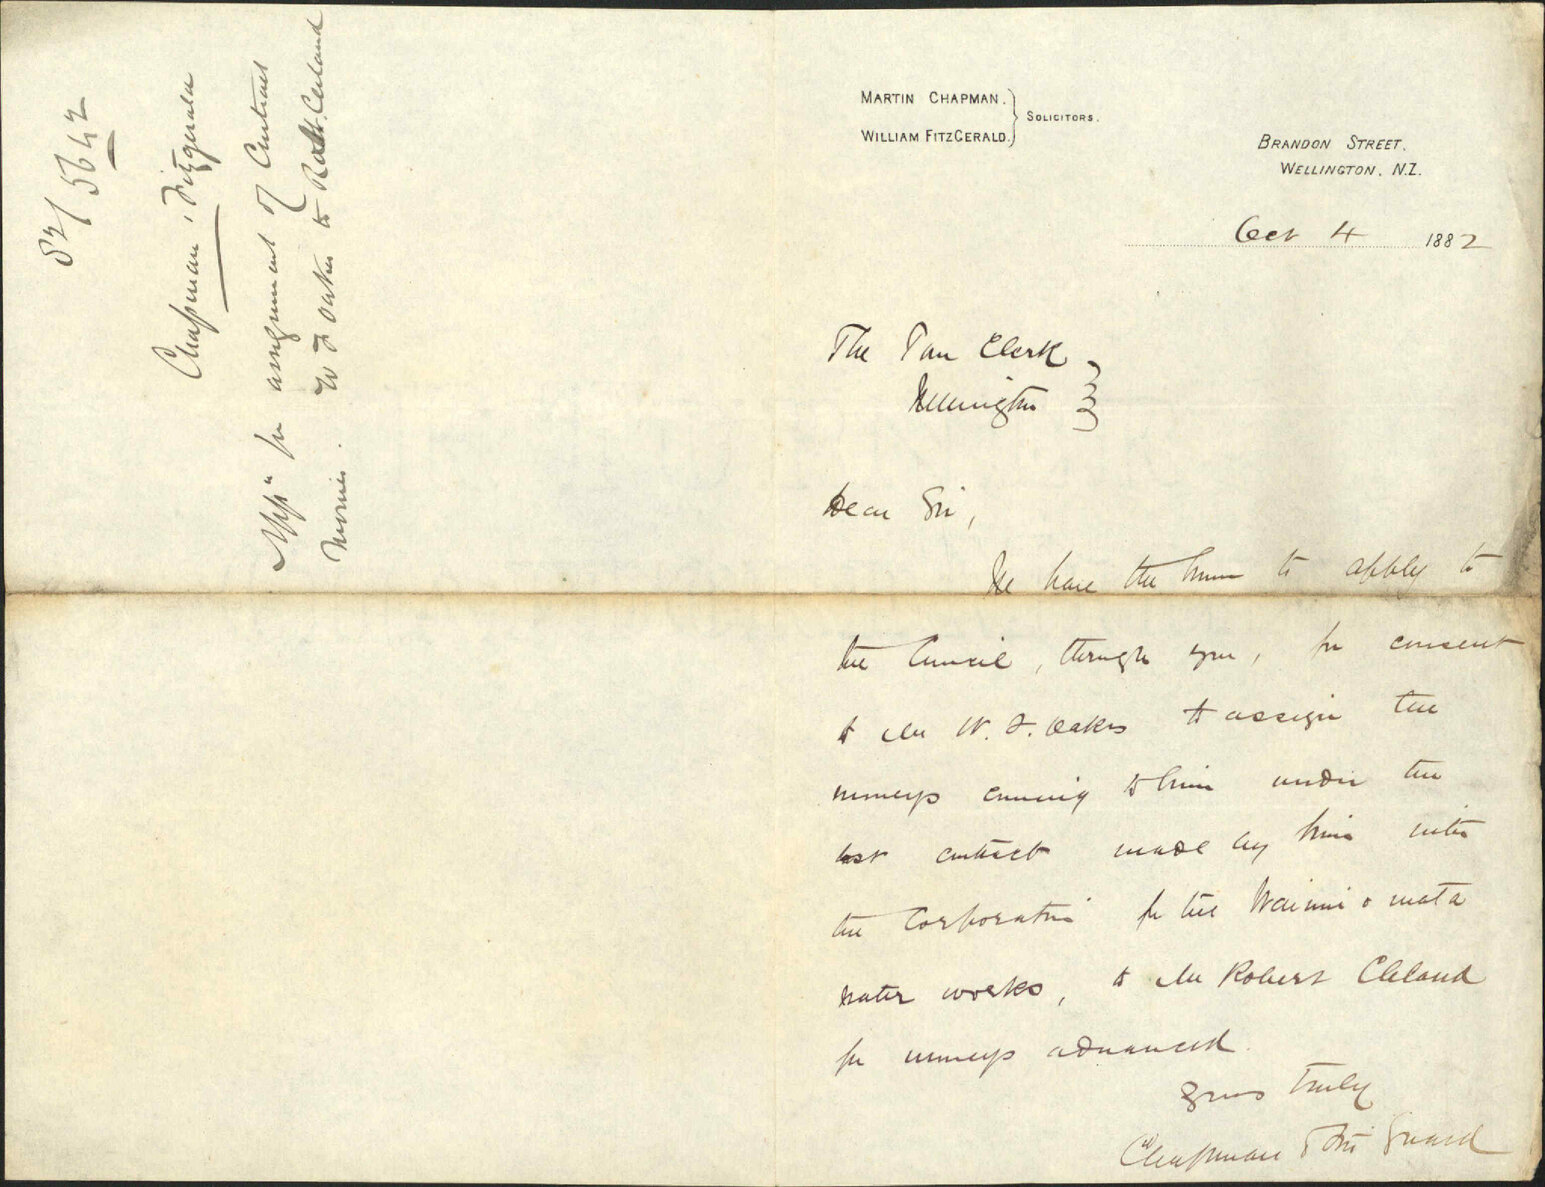 82/5642
Chapman & Fitzgerald
Appn for assignment of Contract
W F Oakes to Robt. Cleland
Monies.
MARTIN CHAPMAN.
WILLIAM FITZGERALD.
SOLICITORS.
BRANDON STREET.
WELLINGTON. N.Z.
Oct 4 1882
The Town Clerk
Wellington
Dear Sir,
We have the honor to apply to
the Council, through you, for consent
to Mr W. F. Oakes to assign the
moneys coming to him under the
last contract made by him with
the Corporation for the Wainui o mata
water works, to Mr Robert Cleland
for moneys advanced.
Yours truly
Chapman & FitzGerald